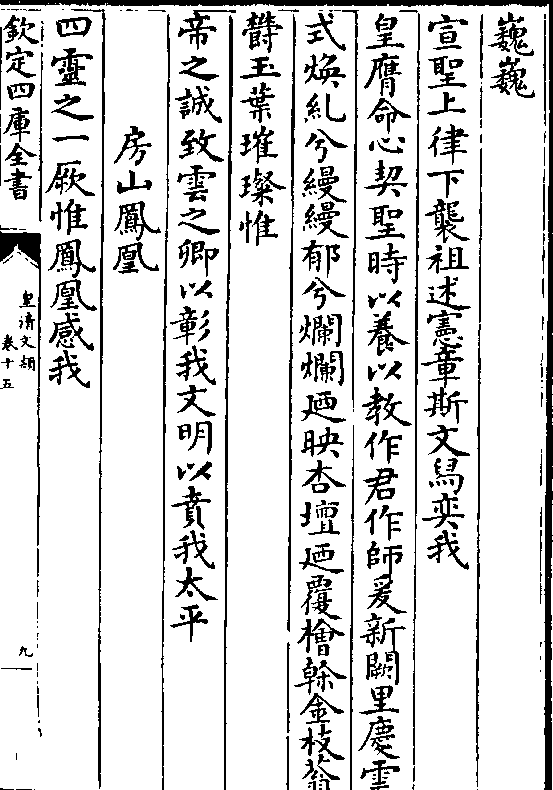 巍巍
宣聖上律下襲祖述憲章斯文舄奕我
皇膺命心契聖時以養以教作君作師爰新闕里慶雲
式煥糺兮縵縵郁兮爛爛廼映杏壇廼覆檜榦金枝蓊
欝玉葉璀璨惟
帝之誠致雲之卿以彰我文明以賁我太平
房山鳳凰
四靈之一厥惟鳳凰感我
欽定四庫全書
皇清文穎
卷十五
九